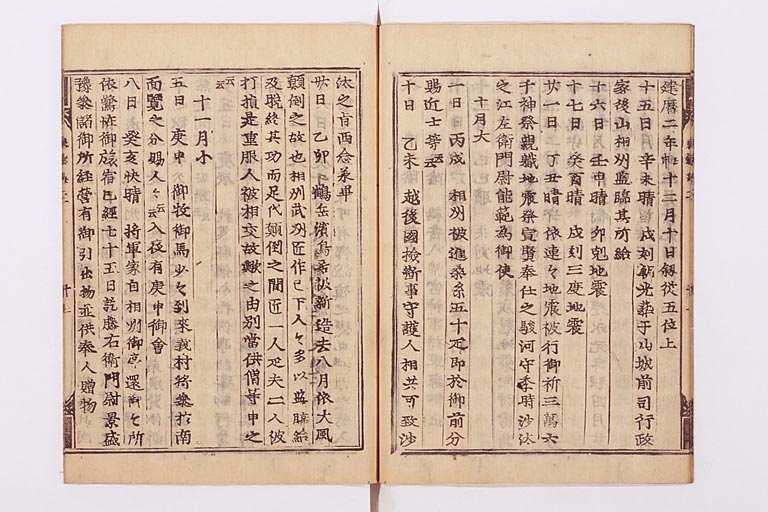 建暦二年十二月十日叙従五位上
十五日 辛未晴 戌刻 于山城前司行政
家後山相州監臨其所給
十六日 壬申晴 卯剋地震
十七日 癸酉晴 戌刻三度地震
廿一日 丁丑晴 依連々地震被行御祈三萬六
千神祭親職地震祭宣賢奉仕之駿河守季時沙汰
之江左衛門尉能範為御使
十月大
二日 丙戌 相州被進桑糸五十疋即於御前分
賜近士等云云
十日 乙未 越後國検断事守護人相共可致沙
汰之旨西念
廿日 乙卯 鶴岳 新造去八月依大風
顛倒之故也相州武州匠作已下人々多以監臨給
及晩終其功而足代顛倒之間匠一人疋夫二人被
打損是重服人被相交故歟之由別當供僧等申之
云云
十一月小
五日 庚申 御牧御馬少々到来義村将参於南
面覽之分賜人々云云入夜有庚申御會
八日 癸亥快晴 将軍家自相州御亭還御々所
依 御旅宿已経七十五日 藤右衛門尉景盛
諸御所経営有御引出物並供奉人贈物